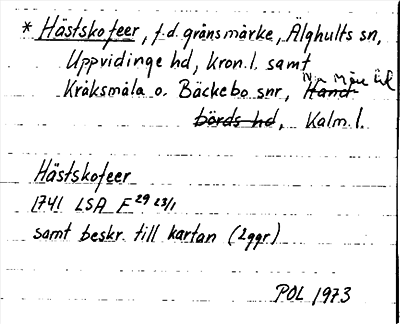 * Hästskofeer, f.d. gränsmärke, Älghults sn,
Uppvidinge hd, Kron. l. samt
Kråksmåla o. Bäckebo snr, N. Möre hd
börds hd, Kalm. l.
Hästskofeer
1741 LSA F 29 23/1
samt beskr. till kartan (2 ggr)
POL 1973